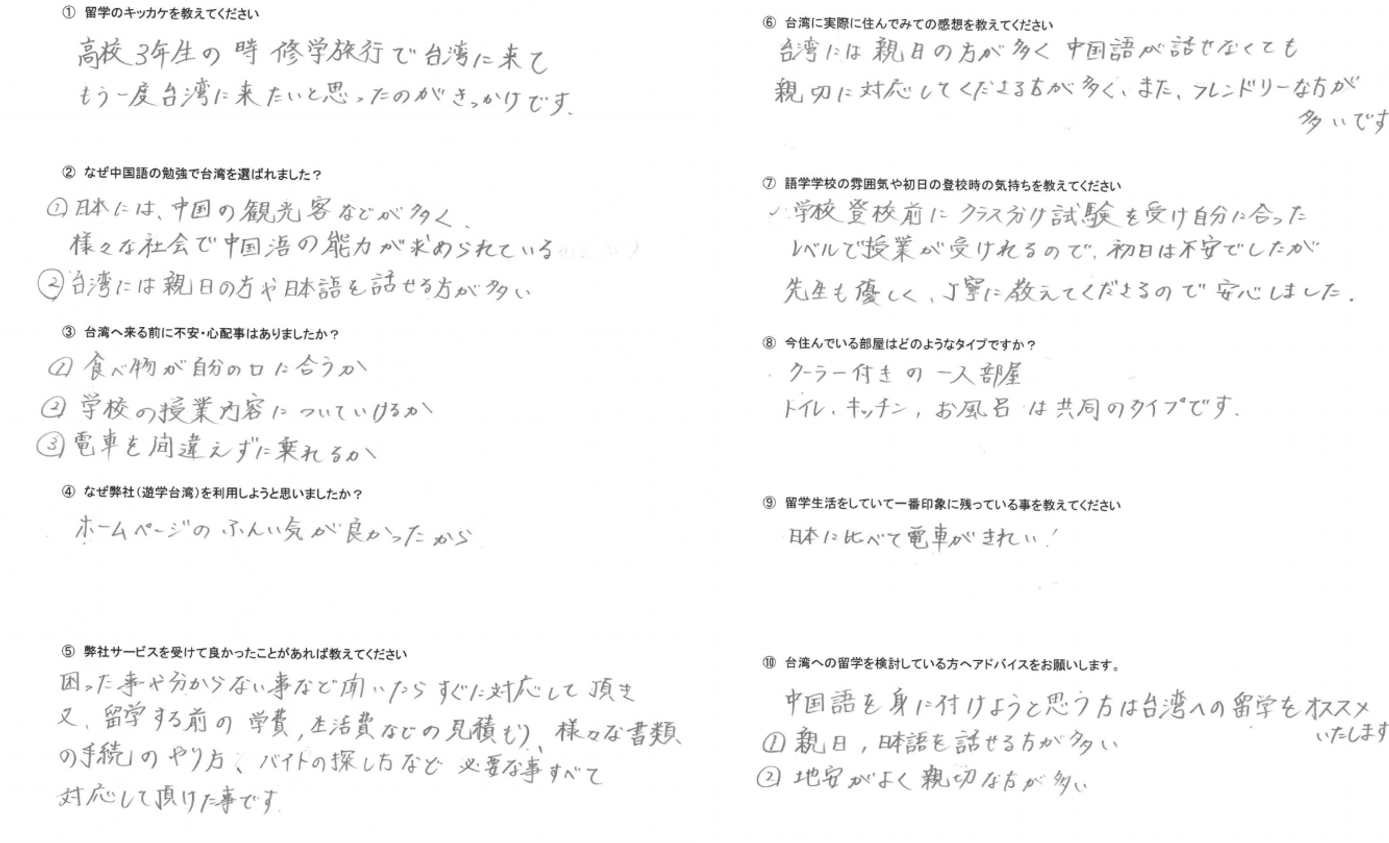 ① 留学のキッカケを教えてください
高校3年生の時 修学旅行で台湾に来て
もう一度台湾に来たいと思ったのがきっかけです.
② なぜ中国語の勉強で台湾を選ばれました？
①日本には、中国の観光客などが多く、
様々な社会で中国語の能力が求められている
②台湾には親日の方や日本語を話せる方が多い
③ 台湾へ来る前に不安・心配事はありましたか？
① 食べ物が自分の口に合うか
② 学校の授業内容についていけるか
③ 電車を間違えずに乗れるか
④ なぜ弊社（遊学台湾）を利用しようと思いましたか？
ホームページのふんい気が良かったから
⑤ 弊社サービスを受けて良かったことがあれば教えてください
困った事や分からない事など聞いたらすぐに対応して頂き
又、留学する前の学費,生活費などの見積もり、様々な書類
の手続のやり方、バイトの探し方など必要な事すべて
対応して頂けた事です.
⑥ 台湾に実際に住んでみての感想を教えてください
台湾には親日の方が多く 中国語が話せなくても
親切に対応してくださる方が多く、また、フレンドリーな方が
多いです
⑦ 語学学校の雰囲気や初日の登校時の気持ちを教えてください
学校登校前にクラス分け試験を受け自分に合った
レベルで授業が受けれるので、初日は不安でしたが
先生も優しく、丁寧に教えてくださるので安心しました.
⑧ 今住んでいる部屋はどのようなタイプですか？
クーラー付きの一人部屋
トイレ、キッチン, お風呂は共同のタイプです.
⑨ 留学生活をしていて一番印象に残っている事を教えてください
日本に比べて電車がきれい!
⑩ 台湾への留学を検討している方へアドバイスをお願いします。
中国語を身に付けようと思う方は台湾への留学をオススメ
いたします
① 親日, 日本語を話せる方が多い
② 地安がよく親切な方が多い